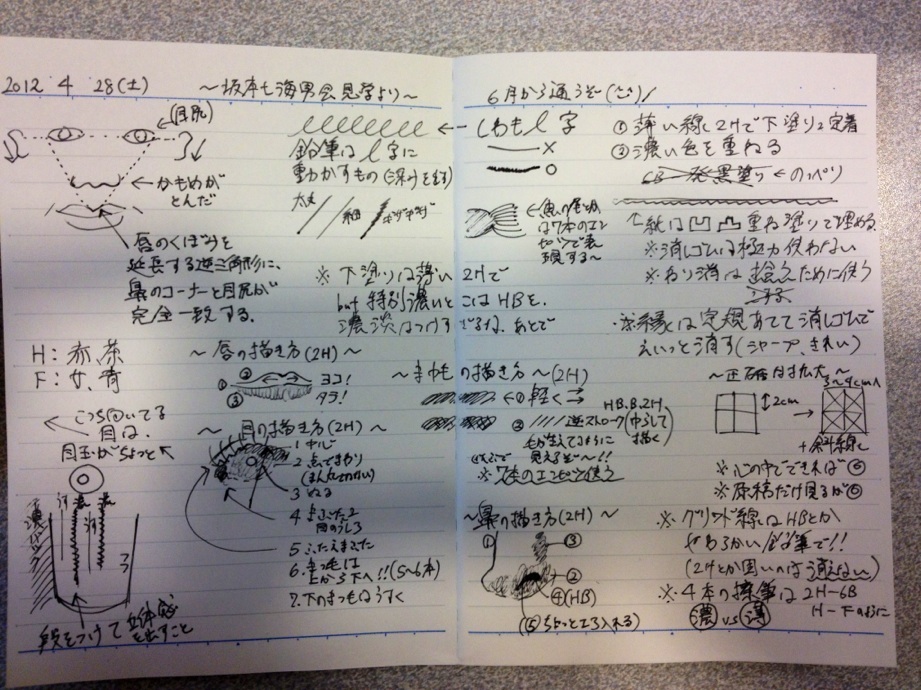 2012 4 28(土) ～坂本七海男会見学より～
(目尻)
かもめが
とんだ
唇のくぼみを
延長する逆三角形に、
鼻のコーナーと目尻が
完全一致する。
鉛筆はℓ字に
動かすもの(深みを増す)
太 細 ギザギザ
※ 下塗りは薄い2Hで
but 特別濃いとこはHBを。
H: 赤、茶
F: 青
～唇の描き方(2H)～
① ② ③
ヨコ!
タテ!
こっち向いてる
目は、
目玉がちょっと
～目の描き方(2H)～
1 中心
2 点で
3 ぬる
4 まぶたと
目のうしろ
5 ふたえまぶた
6. まつ毛は
上から下へ!!(5～6本)
7. 下のまつ毛はうすく
段をつけて立体感
を出すこと
6月から通うぞ
しわもℓ字
① 薄い線と2Hで下塗り&定着
② 濃い色を重ねる
一発黒塗り ← のっぺり
↑紙は凹凸重ね塗りで埋める
※消しゴムは極力使わない
※ねり消は
ために使う
※縁は定規あてて消しゴムで
えいっと消す(シャープ、きれい)
～まゆ毛の描き方(2H)～
① 軽く
② 逆ストローク
HB.B.2H
毛が生えてるように
見えるぞ～!!
※7本のエンピツ使う
～正確な拡大～
3～4cm
2cm
+斜線
※心の中でできれば◎
※原稿だけ見るが◎
～鼻の描き方(2H)～
①
③
②
④(HB)
(⑤ちょっと入れる)
※グリッド線はHBとか
やわらかい鉛筆で!!
(2Hとか固いのは消えない)
※4本の鉛筆は2H－6B
濃 vs 薄